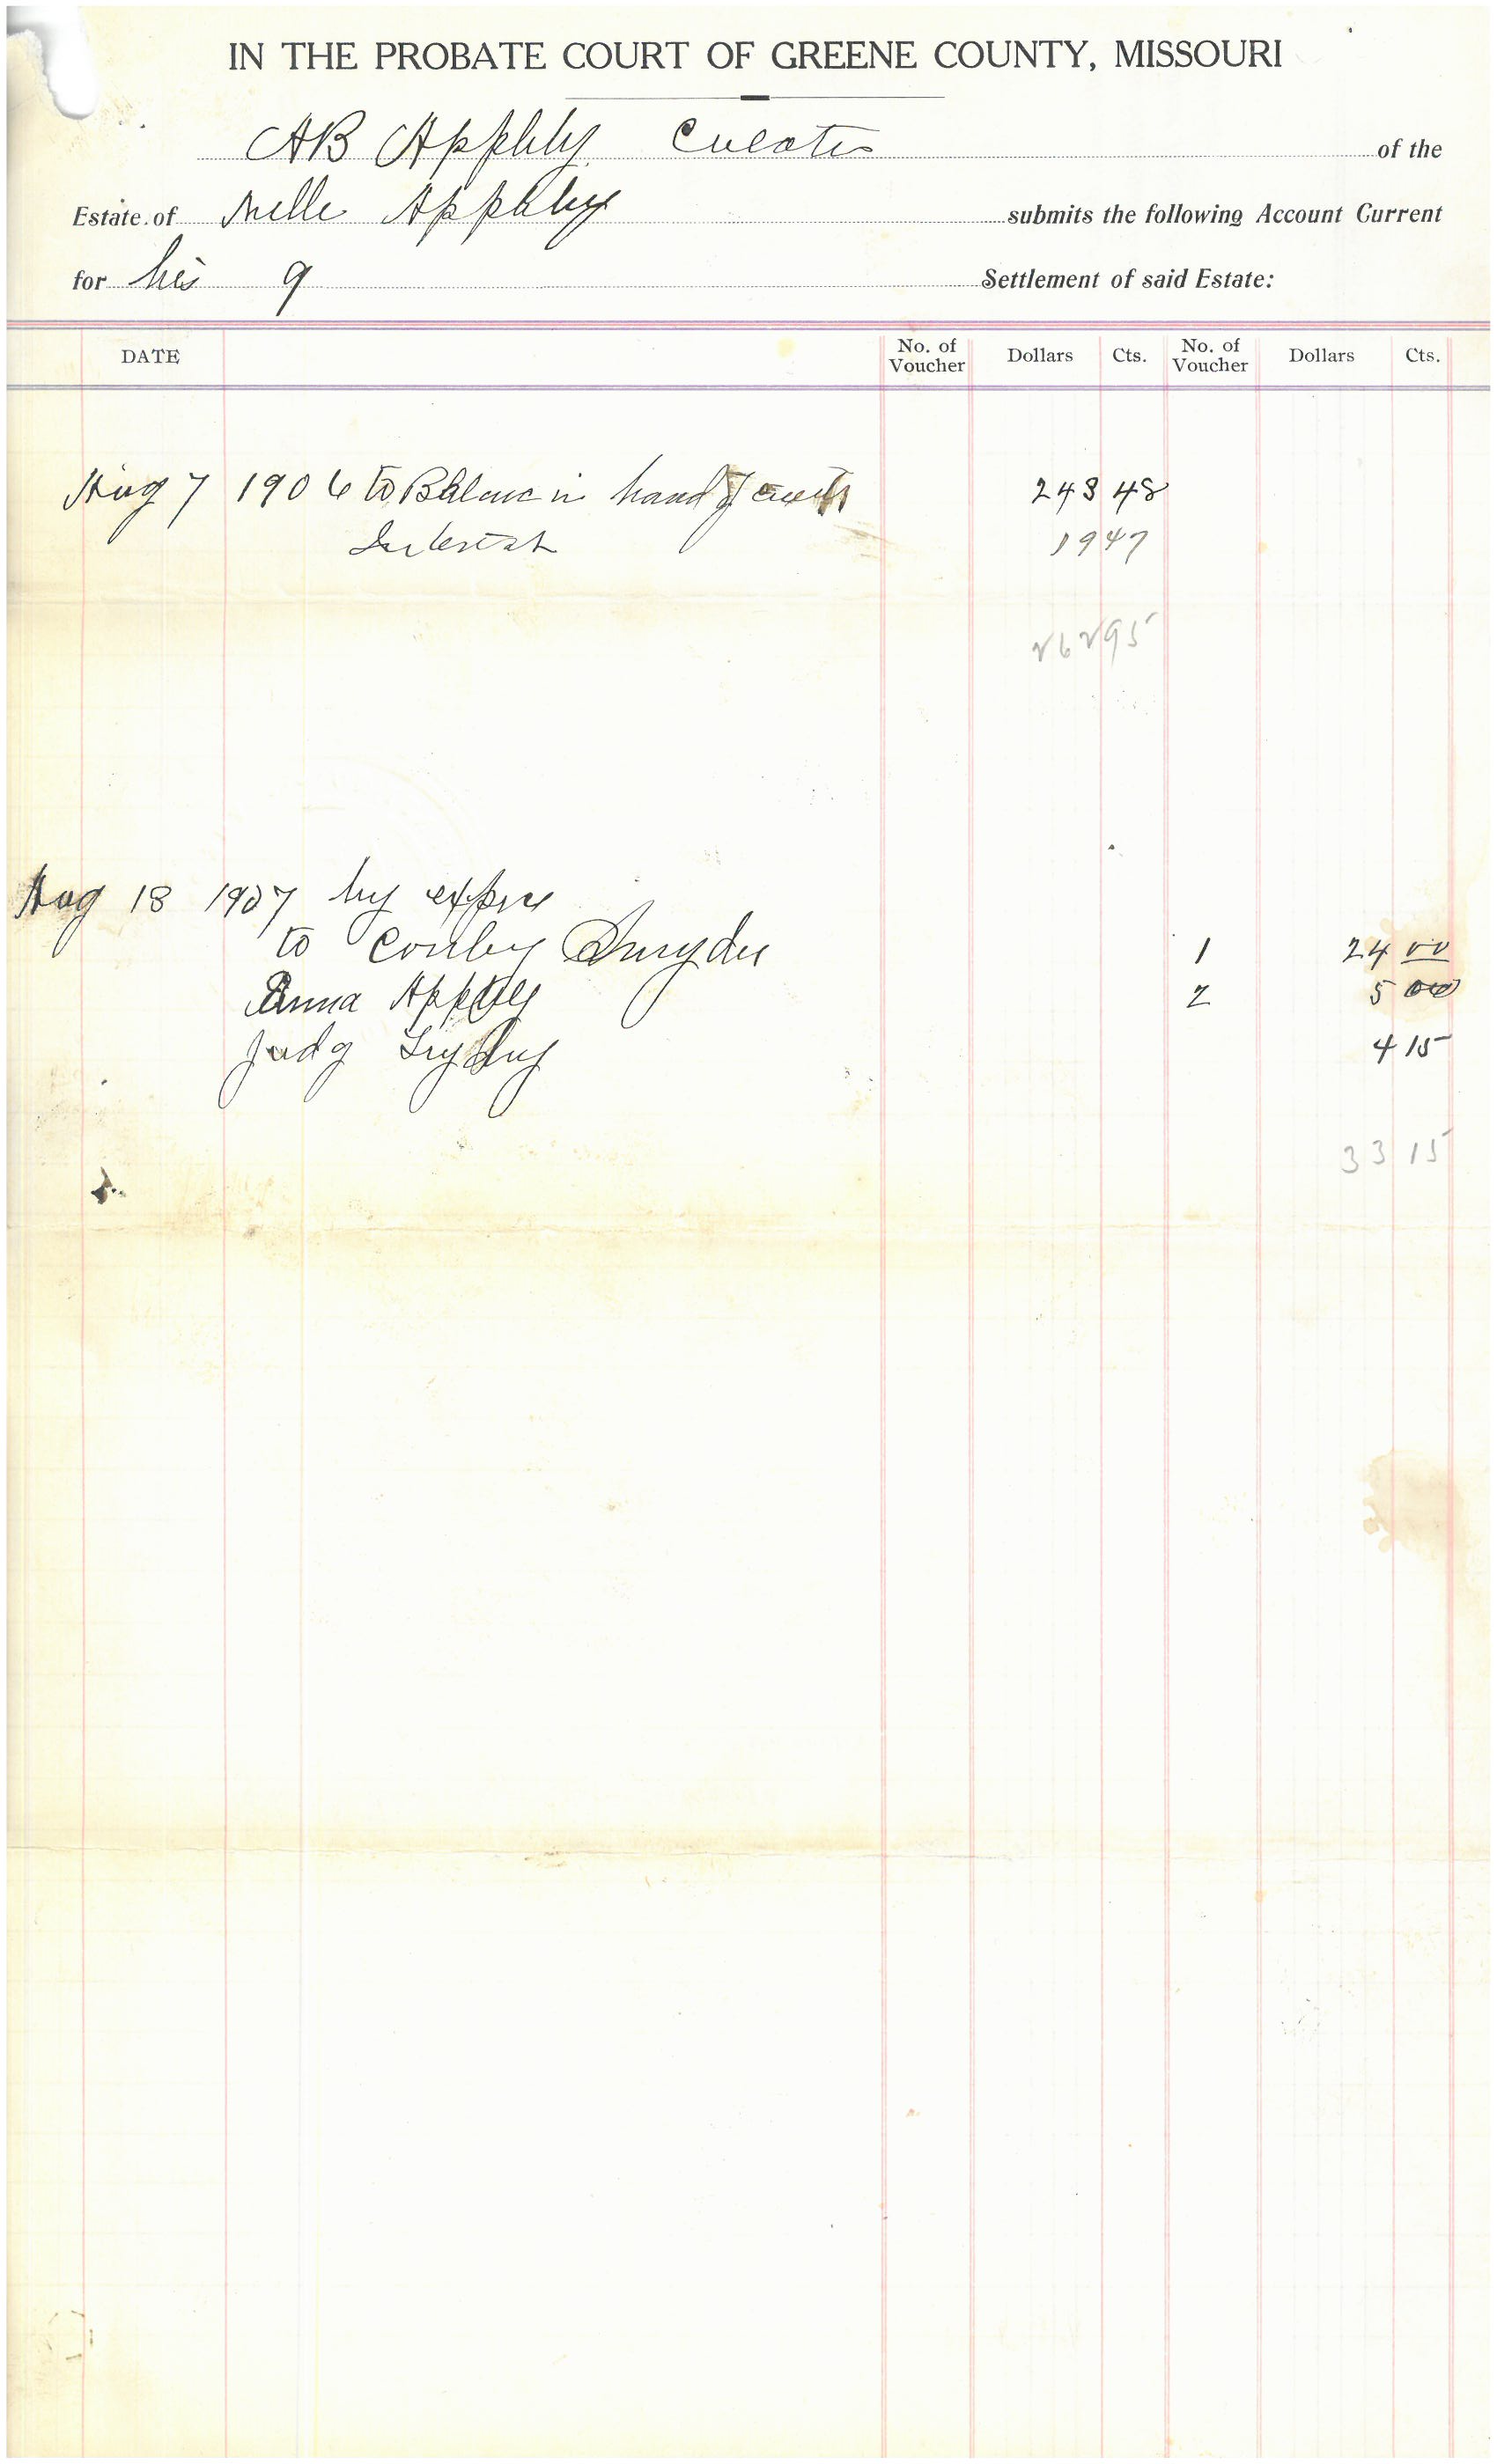 IN THE PROBATE COURT OF GREENE COUNTY, MISSOURI
AB Appleby of the
Estate of Nelle Appleby submits the following Account Current
for his 9 Settlement of said Estate:
DATE No. of Voucher Dollars Cts. No. of Voucher Dollars Cts.
Aug 7 1906 to Balance in hand of 243 48
Interest 19 47
262 95
Aug 13 1907 by
to Snyder 1 24 00
Anna Appleby 2 5 00
Judg 4 15
33 15